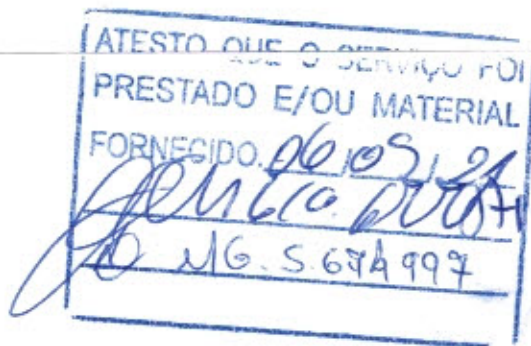 ATESTO QUE O SERVIÇO FOI
PRESTADO E/OU MATERIAL
FORNECIDO. 06/05/21
MG. 5.674 997